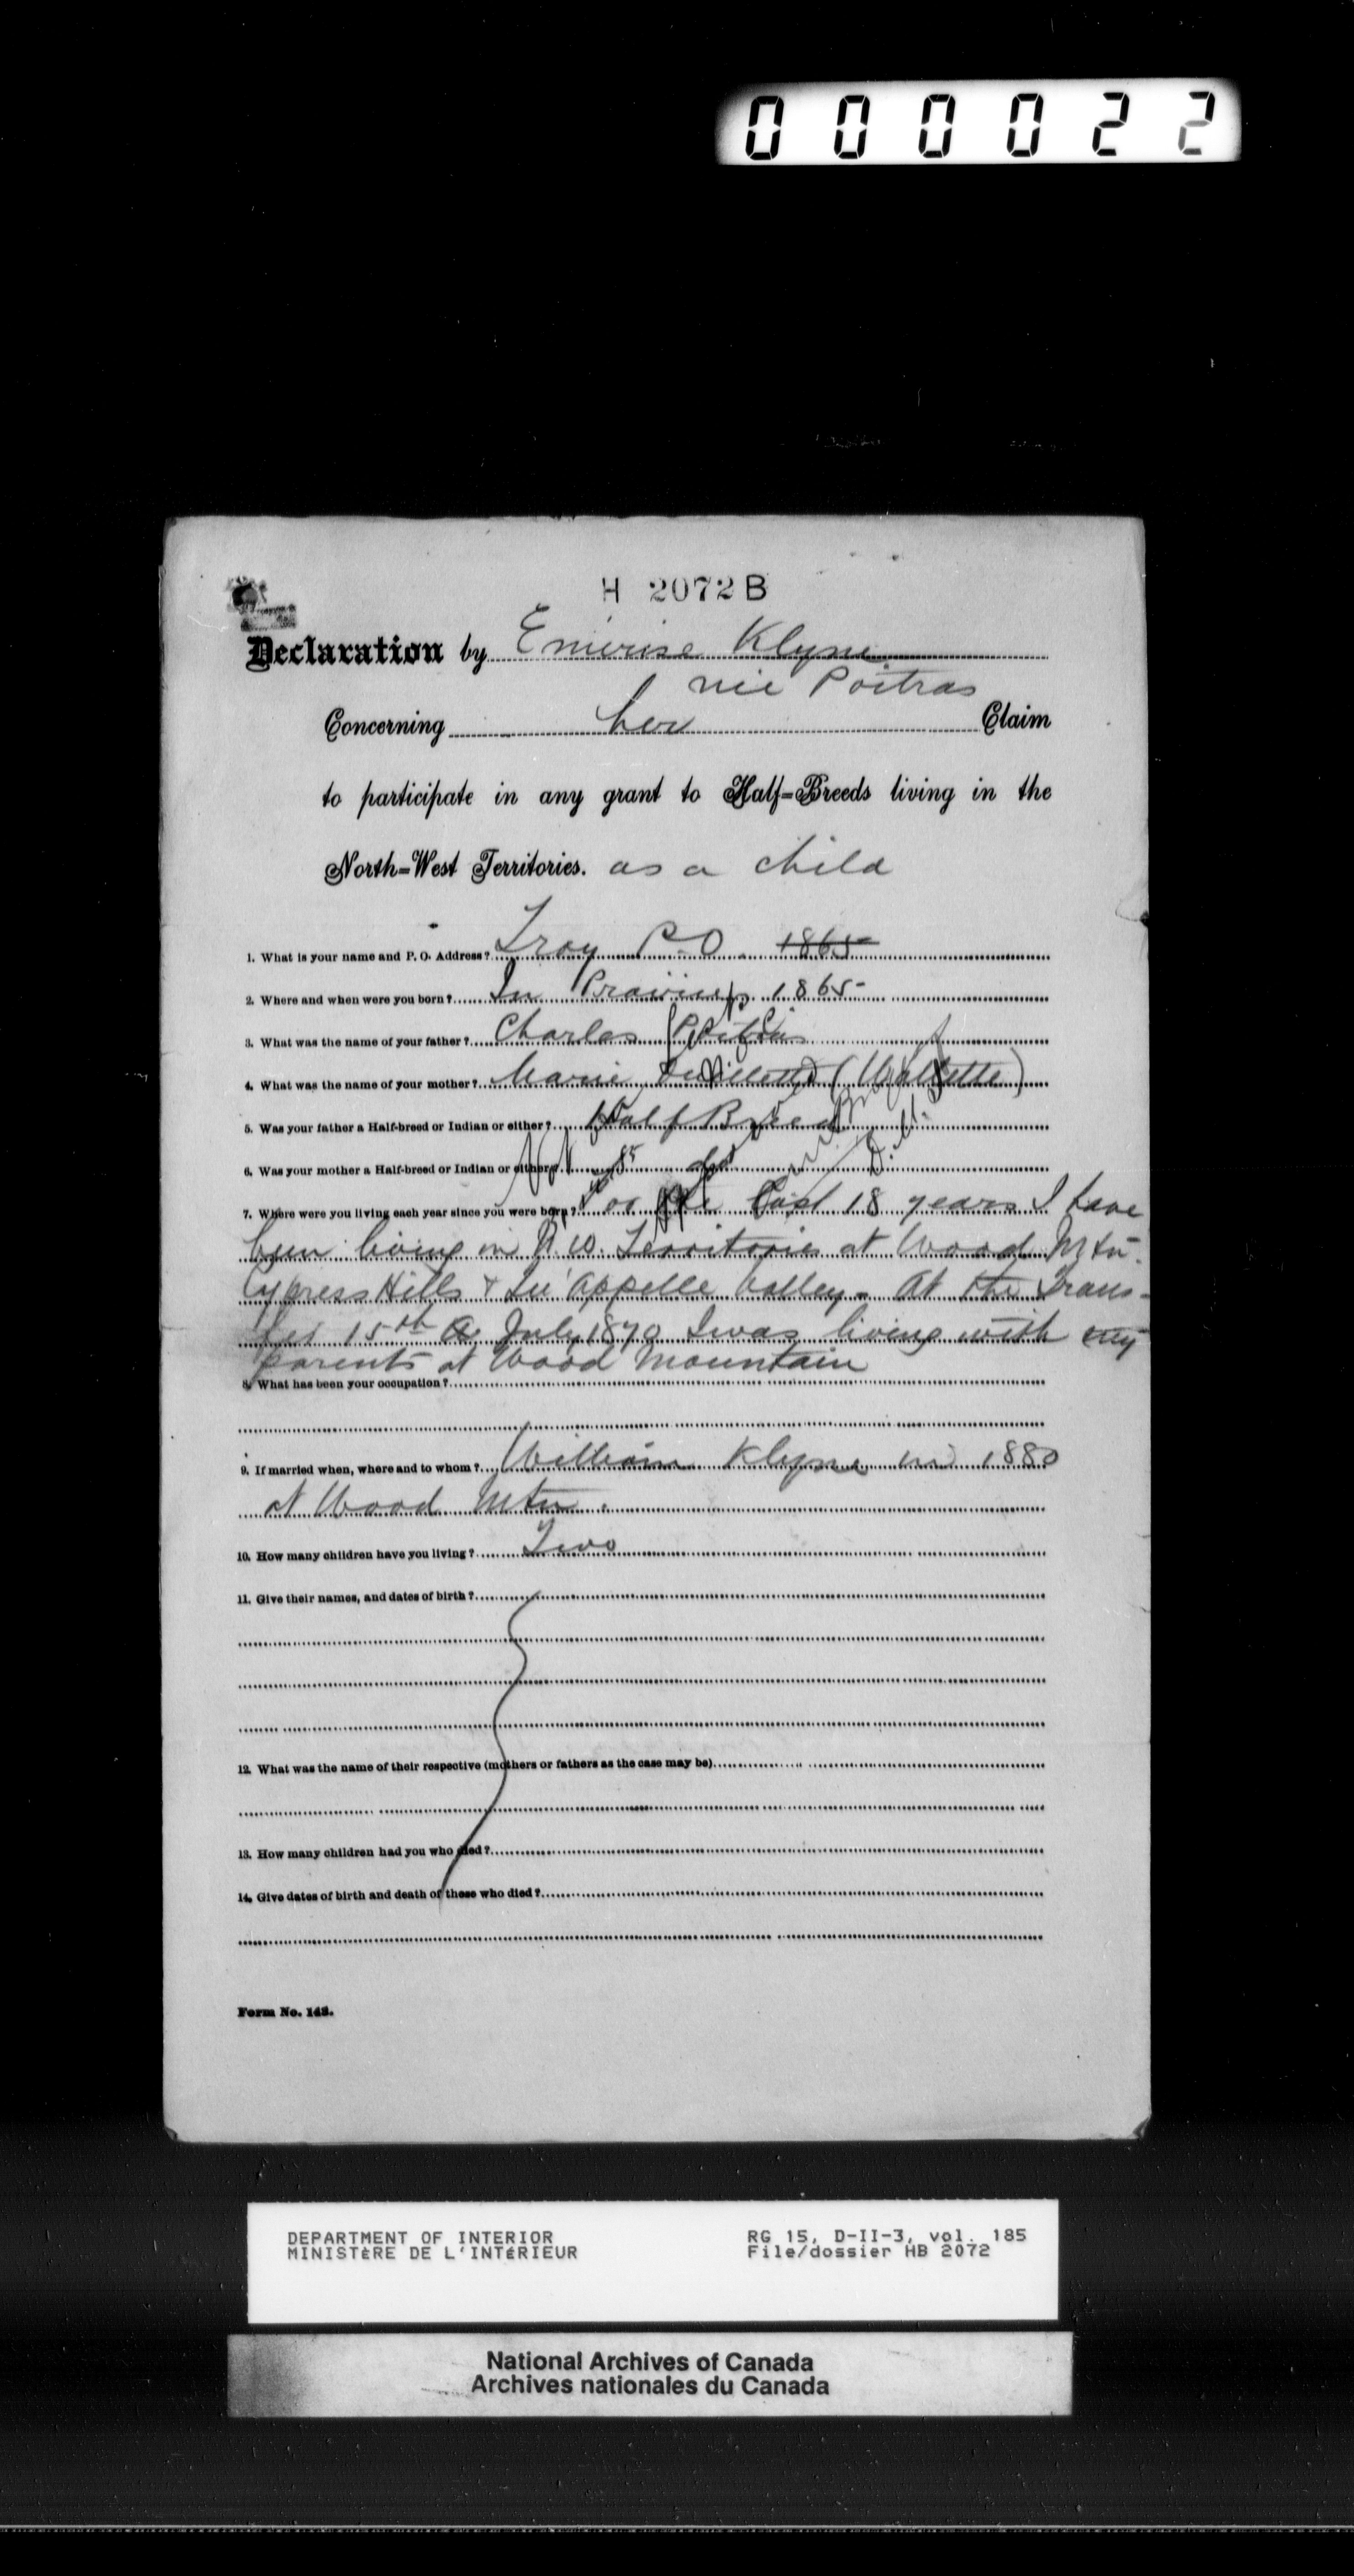 000022
H 2072 B
Declaration by Emerise Klyne
née Poitras
Concerning her Claim
to participate in any grant to Half-Breeds living in the
North-West Territories. as a child
1. What is your name and P. O. Address? Troy P.O. 1865
2. Where and when were you born? In Prairies 1865
3. What was the name of your father? Charles Poitras
4. What was the name of your mother? Marie
5. Was your father a Half-breed or Indian or either? Half Breed
6. Was your mother a Half-breed or Indian or either? do
7. Where were you living each year since you were born? For the last 18 years I have
been living in N. W. Territories at Wood Mtn
Cypress Hills & Qu'Appelle Valley. At the Trans-
fer 15th July 1870 I was living with my
parents at Wood Mountain
8. What has been your occupation?
9. If married when, where and to whom? William Klyne in 1880
at Wood Mtn.
10. How many children have you living? Two
11. Give their names, and dates of birth?
12. What was the name of their respective (mothers or fathers as the case may be)
13. How many children had you who died?
14. Give dates of birth and death of these who died?
Form No. 143.
DEPARTMENT OF INTERIOR RG 15, D-II-3, vol. 185
MINISTÈRE DE L'INTÉRIEUR File/dossier HB 2072
National Archives of Canada
Archives nationales du Canada